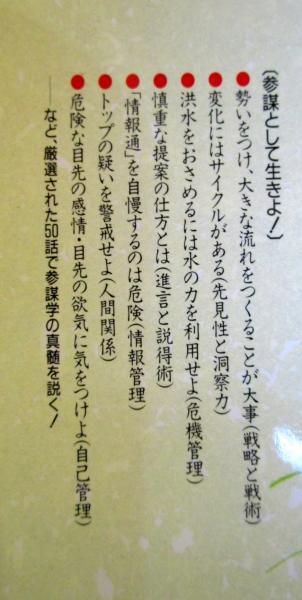 〔参謀として生きよ！〕
●勢いをつけ、大きな流れをつくることが大事（戦略と戦術）
●変化にはサイクルがある（先見性と洞察力）
●洪水をおさめるには水の力を利用せよ（危機管理）
●慎重な提案の仕方とは（進言と説得術）
●「情報通」を自慢するのは危険（情報管理）
●トップの疑いを警戒せよ（人間関係）
●危険な目先の感情・目先の欲気に気をつけよ（自己管理）
──など、厳選された50話で参謀学の真髄を説く！